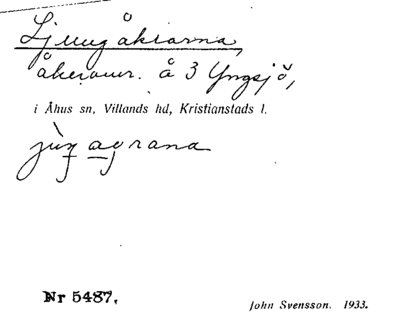 Ljungåkrarna,
åkerområ. å 3 Yngsjö,
i Åhus sn, Villands hd, Kristianstads l.
jùŋ agrana
Nr 5487.
John Svensson. 1933.